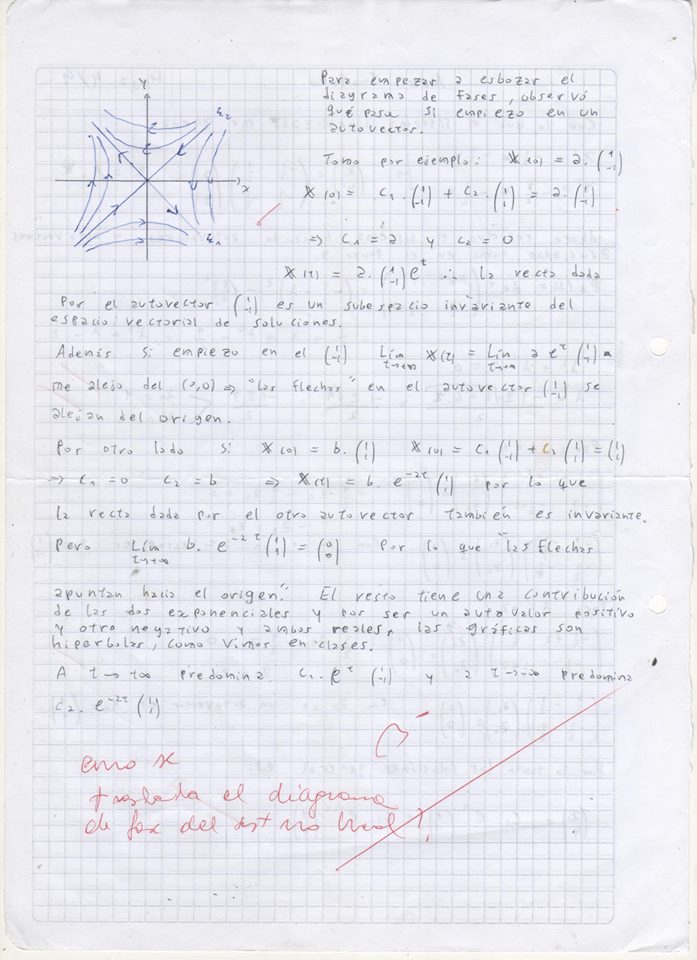 Para empezar a esbozar el
diagrama de fases, observó
qué pasa si empiezo en un
autovector.
y
ε₂
x
ε₁
Tomo por ejemplo: X(0) = a. (1 -1)
X(0) = C₁. (1 -1) + C₂. (1 1) = a. (1 -1)
⇒ C₁ = a y C₂ = 0
X(t) = a. (1 -1) e^t ∴ la recta dada
Por el autovector (1 -1) es un subespacio invariante del
espacio vectorial de soluciones.
Además si empiezo en el (1 -1) Lím t→+∞ X(t) = Lím t→+∞ a e^t (1 -1)
me alejo del (0,0) ⇒ "las flechas" en el autovector (1 -1) se
alejan del origen.
Por otro lado si X(0) = b. (1 1) X(0) = C₁ (1 -1) + C₂ (1 1) = (1 1)
→ C₁ = 0 C₂ = b ⇒ X(t) = b. e^-2t (1 1) por lo que
la recta dada por el otro autovector también es invariante.
Pero Lím t→+∞ b. e^-2t (1 1) = (0 0) Por lo que "las flechas
apuntan hacia el origen". El resto tiene una contribución
de las dos exponenciales y por ser un autovalor positivo
y otro negativo y ambos reales, las gráficas son
hiperbolas, como vimos en clases.
A t→+∞ predomina C₁. e^t (1 -1) y a t→-∞ predomina
C₂. e^-2t (1 1)
traslada el diagrama
de del no lineal